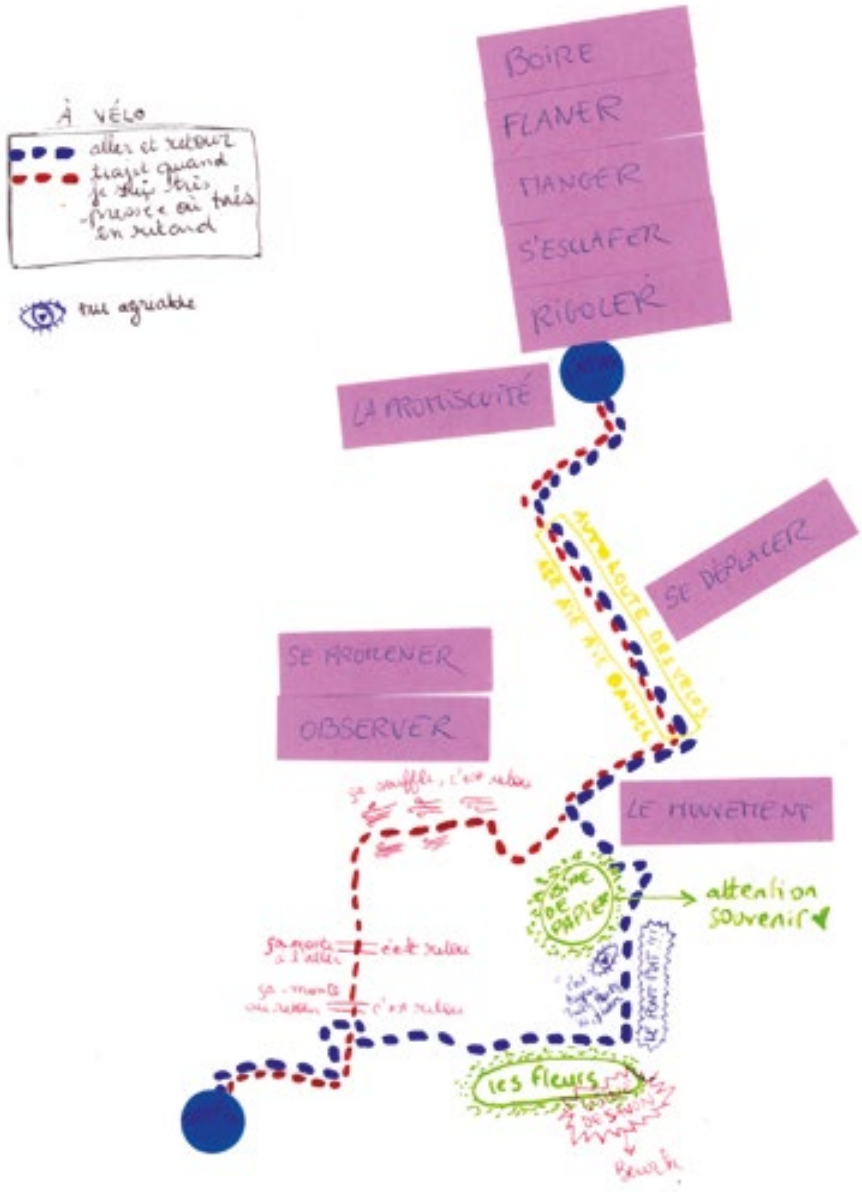 À VÉLO
aller et retour
trajet quand
je suis très
pressée où très
en retard
vue agréable
BOIRE
FLANER
MANGER
S'ESCLAFER
RIGOLER
LA PROMISCUITÉ
AUTOROUTE DES VELOS
AIE AIE AIE DANGER
SE DÉPLACER
SE PROMENER
OBSERVER
ça souffle, c'est relou
LE MOUVEMENT
DE
PAPIER
attention
souvenir
ça monte
à l'aller
c'est relou
ça monte
au retour
c'est relou
LE PONT
les fleurs
DE SAVON
Beurk